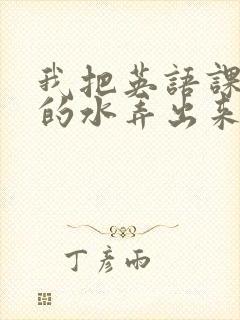 我把英語課
的水弄出来
丁彦雨